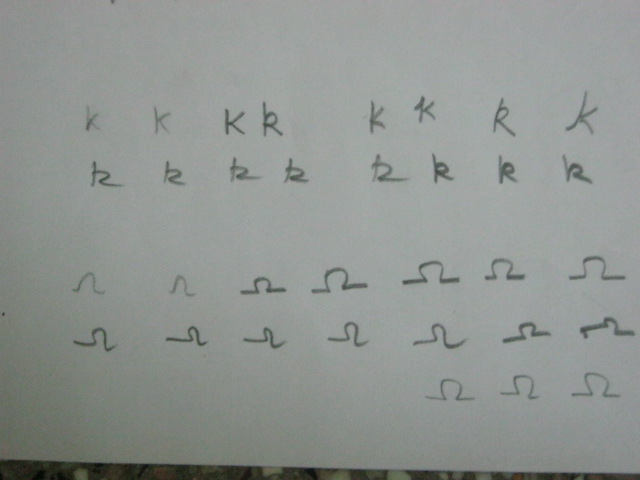 k k k k k k k k
k k k k k k k k
Ω Ω Ω Ω Ω Ω Ω
Ω Ω Ω Ω Ω Ω Ω
Ω Ω Ω